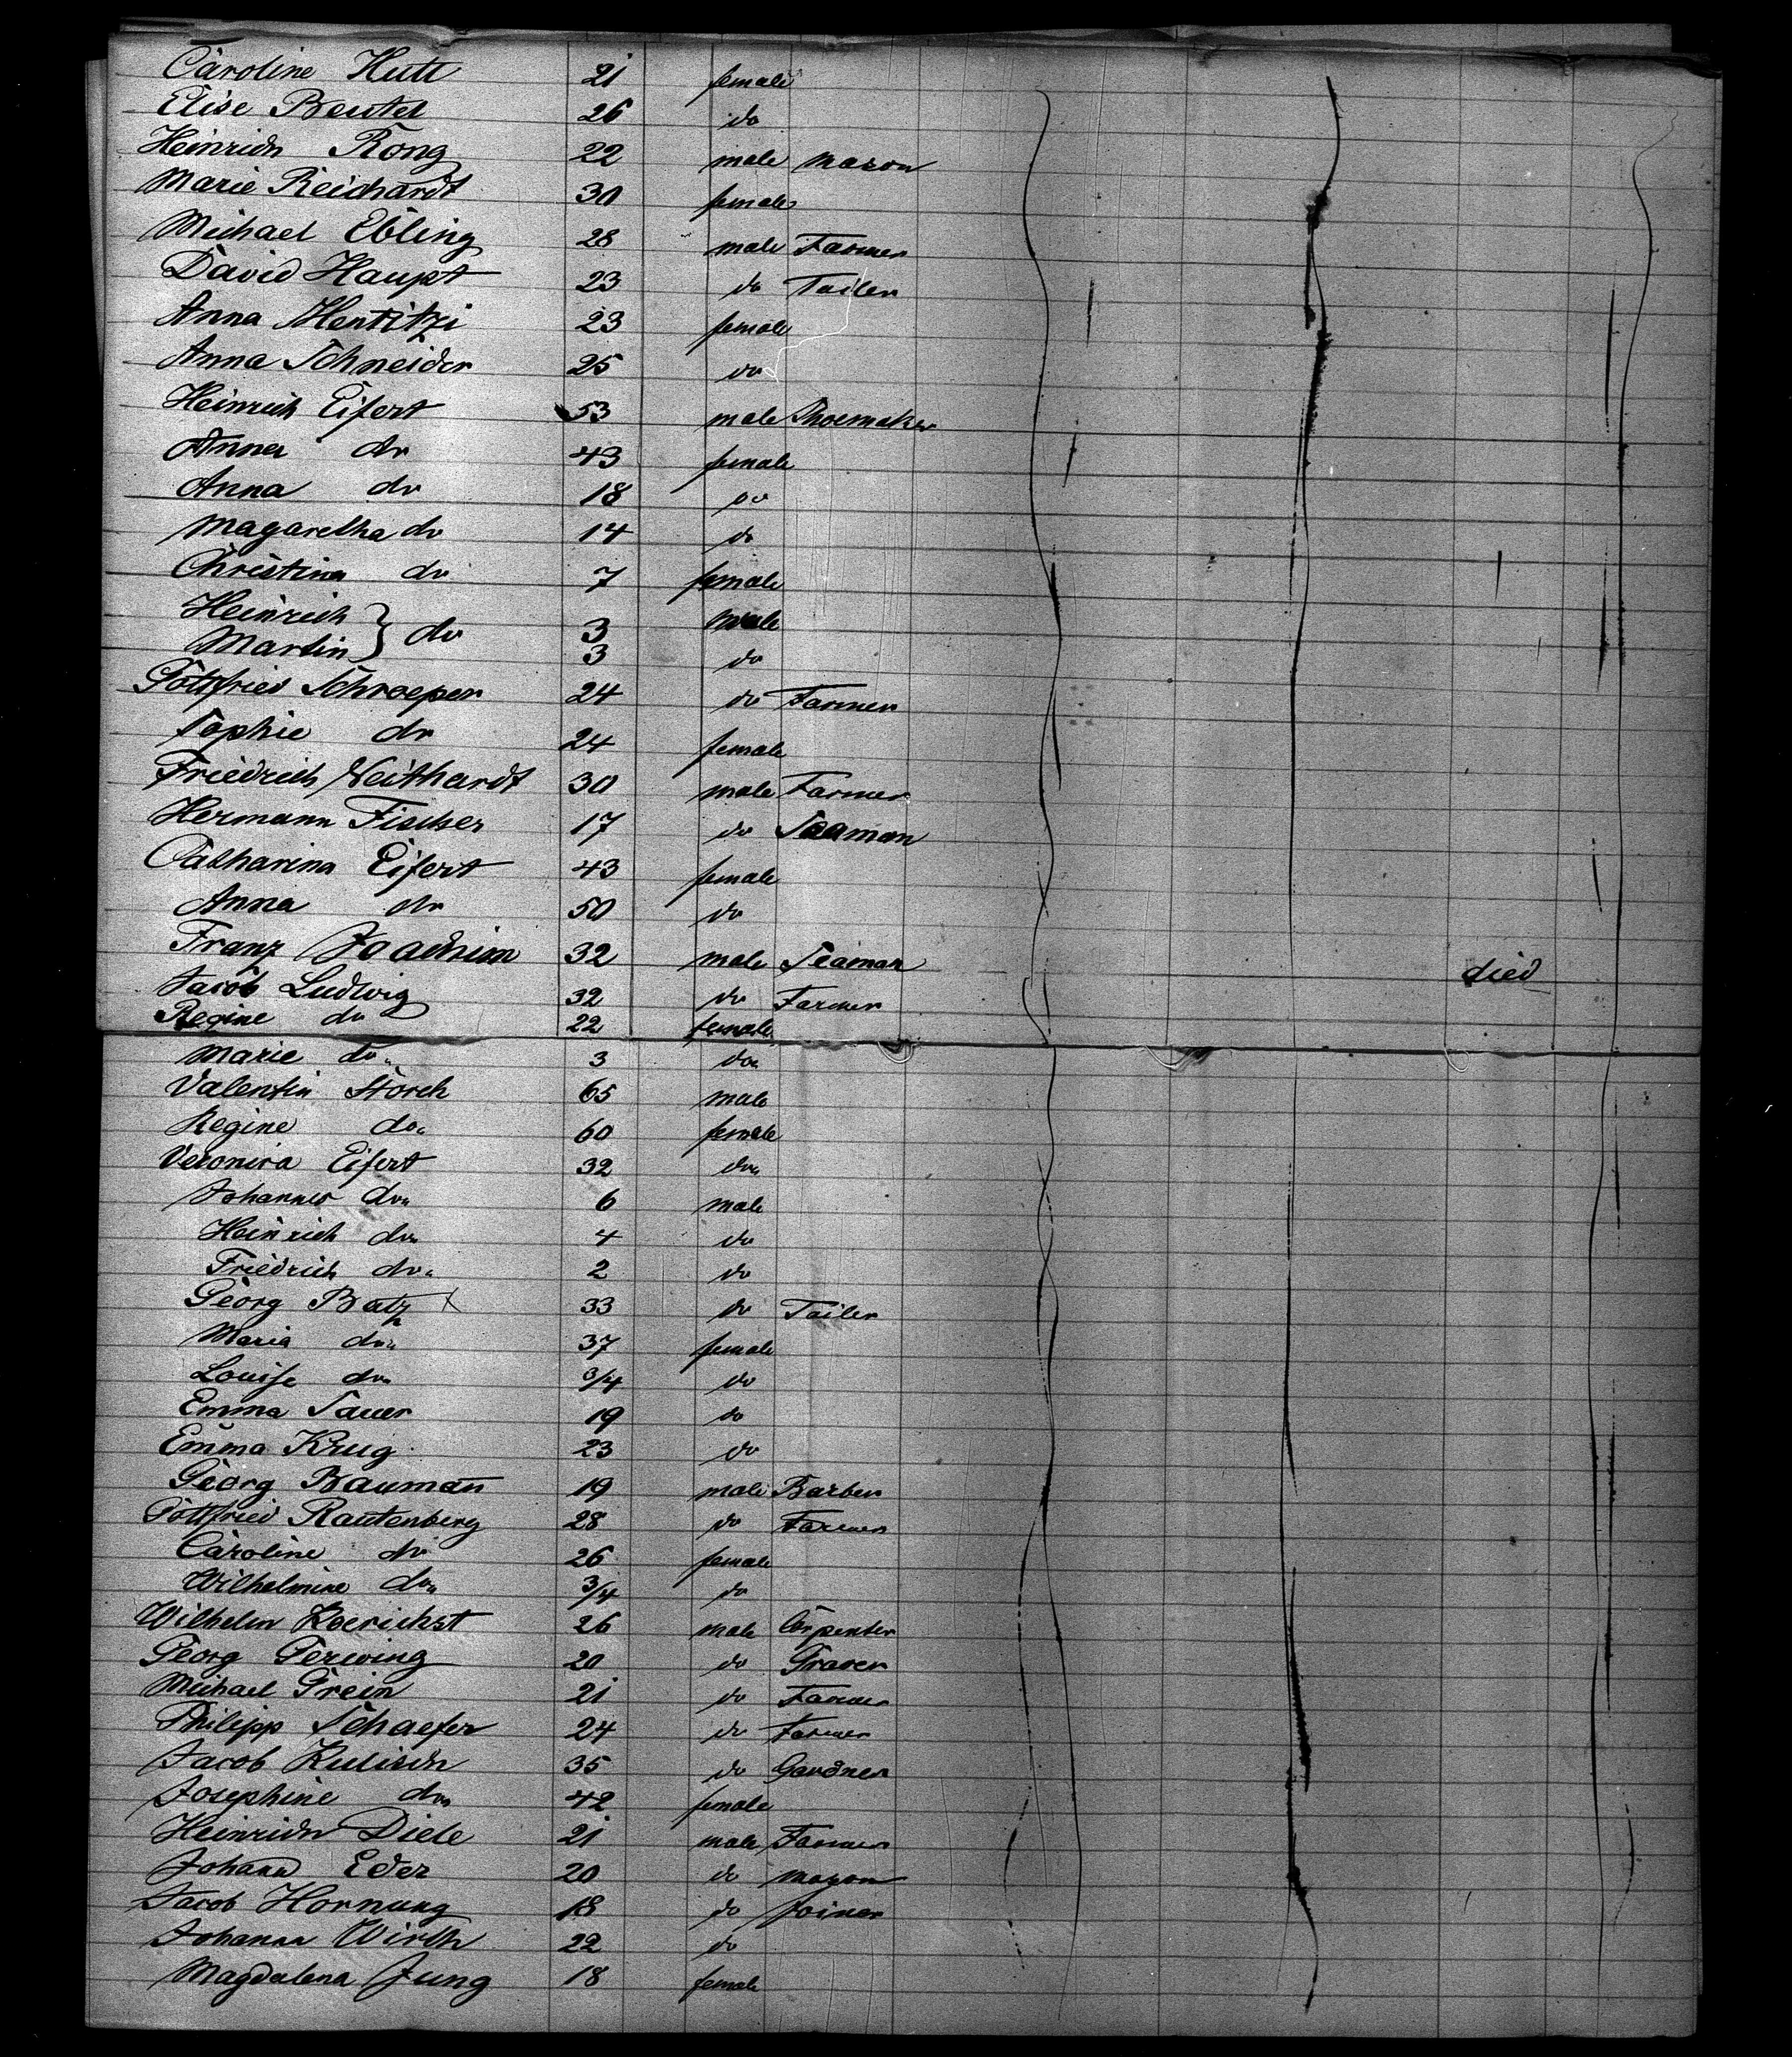 Caroline Hutt 21 female
Elise Beutel 26 do
Heinrich Rong 22 male Mason
Marie Reichardt 30 female
Michael Ebling 28 male Farmer
David Haupt 23 do Tailer
Anna Mentitzi 23 female
Anna Schneider 25 do
Heinrich Eifert 53 male Shoemaker
Anna do 43 female
Anna do 18 do
Magaretha do 14 do
Christina do 7 female
Heinrich } do 3 male
Martin } 3 do
Gottfried Schroeper 24 do Farmer
Sophie do 24 female
Friedrich Neithardt 30 male Farmer
Hermann Fischer 17 do Seaman
Catharina Eifert 43 female
Anna do 50 do
Franz Joachim 32 male Seaman died
Jacob Ludwig 32 do Farmer
Regine do 22 female
Marie do 3 do
Valentin Storch 65 male
Regine do 60 female
Veronica Eifert 32 do
Johannes do 6 male
Heinrich do 4 do
Friedrich do 2 do
Georg Batz x 33 do Tailer
Maria do 37 female
Louise do 3/4 do
Emma Sauer 19 do
Emma Krug 23 do
Georg Baumann 19 male Barber
Gottfried Rautenberg 28 do Farmer
Caroline do 26 female
Wilhelmine do 3/4 do
Wilhelm Koerichst 26 male Carpenter
Georg Gerwing 20 do Graver
Michael Grein 21 do Farmer
Philipp Schaefer 24 do Farmer
Jacob Kulisch 35 do Gardner
Josephine do 42 female
Heinrich Diele 21 male Farmer
Johann Eder 20 do Mason
Jacob Hornung 18 do Joiner
Johanna Wirth 22 do
Magdalena Jung 18 female